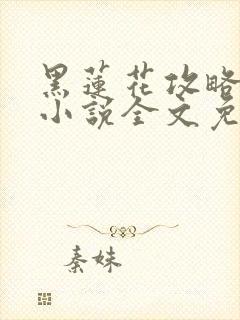 黑蓮花攻略
小說全文免
秦妹